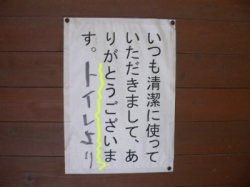 いつも清潔に使って
いただきまして、あ
りがとうございま
す。トイレより